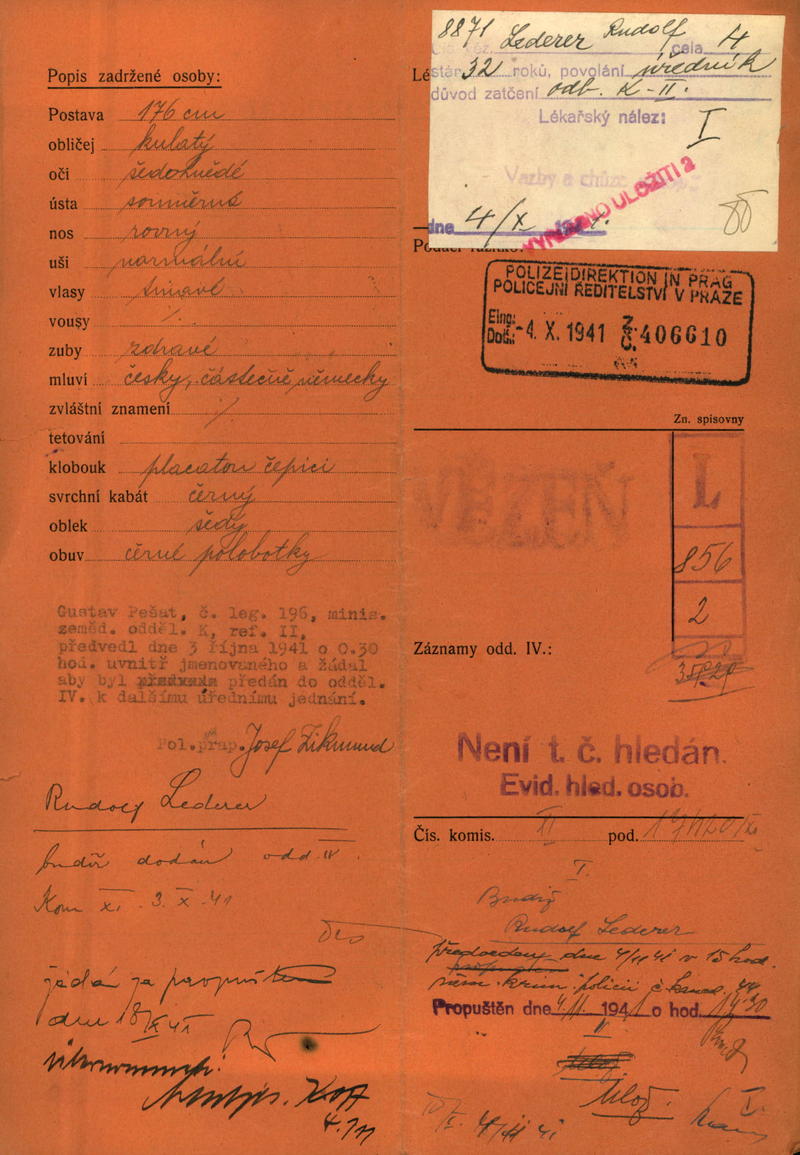 Popis zadržené osoby:
Postava 176 cm
obličej kulatý
oči šedohnědé
ústa souměrná
nos rovný
uši normální
vlasy tmavé
vousy /.
zuby zdravé
mluví česky, částečně německy
zvláštní znamení /.
tetování
klobouk placatou čepici
svrchní kabát černý
oblek šedý
obuv černé polobotky
Gustav Pešat, č. leg. 196, minis.
zeměd. odděl. K, ref. II,
předvedl dne 3 října 1941 o 0.30
hod. uvnitř jmenovaného a žádal
aby byl předán do odděl.
IV. k dalšímu úřednímu jednání.
Pol.prap. Josef Zikmund
Rudolf Lederer
budiž dodán odd. IV.
Kom XI. 3. X. 41
dne 18/X 41
4./11
8871 Lederer Rudolf cela 4
stár 32 roků, povolání úředník
důvod zatčení odb. K-II.
Lékařský nález:
I
Vazby a chůze
dne 4/X
ULOŽITI 2
Lé
POLIZEIDIREKTION IN PRAG
POLICEJNÍ ŘEDITELSTVÍ V PRAZE
Eing:
Doš.: -4. X. 1941 Z. Č. 406610
Zn. spisovny
VĚZEŇ
L
856
2
Záznamy odd. IV.:
Není t. č. hledán.
Evid. hled. osob.
Čís. komis. XI pod.
I.
Budiž
Rudolf Lederer
předvedený dne 4/11 41 v 15 hod.
něm. krim. policii
Propuštěn dne 4.11. 1941 o hod.
II
4/11 41